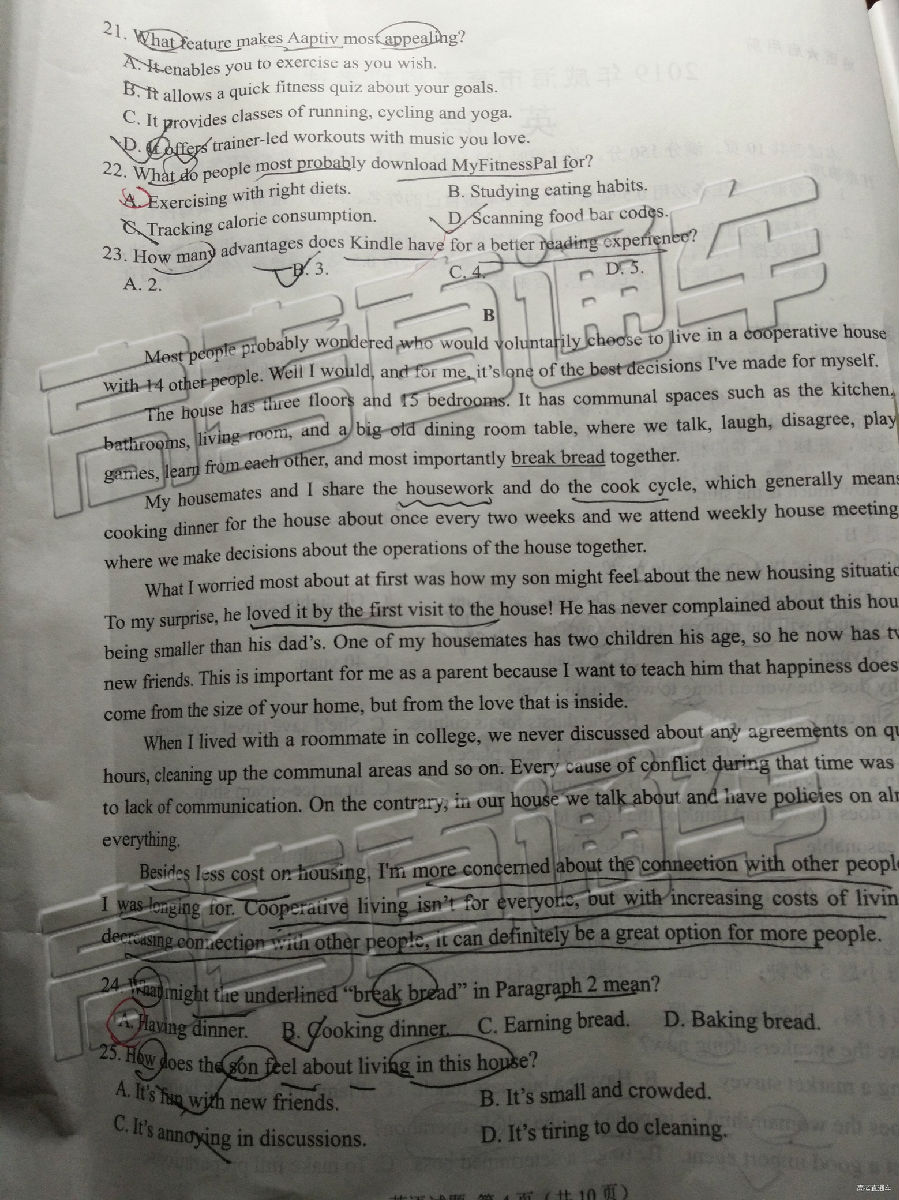 21. What feature makes Aaptiv most appealing?
A. It enables you to exercise as you wish.
B. It allows a quick fitness quiz about your goals.
C. It provides classes of running, cycling and yoga.
D. It offers trainer-led workouts with music you love.
22. What do people most probably download MyFitnessPal for?
A. Exercising with right diets. B. Studying eating habits.
C. Tracking calorie consumption. D. Scanning food bar codes.
23. How many advantages does Kindle have for a better reading experience?
A. 2. B. 3. C. 4. D. 5.
B
Most people probably wondered who would voluntarily choose to live in a cooperative house
with 14 other people. Well I would, and for me, it's one of the best decisions I've made for myself.
The house has three floors and 15 bedrooms. It has communal spaces such as the kitchen,
bathrooms, living room, and a big old dining room table, where we talk, laugh, disagree, play
games, learn from each other, and most importantly break bread together.
My housemates and I share the housework and do the cook cycle, which generally means
cooking dinner for the house about once every two weeks and we attend weekly house meeting
where we make decisions about the operations of the house together.
What I worried most about at first was how my son might feel about the new housing situatio
To my surprise, he loved it by the first visit to the house! He has never complained about this hou
being smaller than his dad's. One of my housemates has two children his age, so he now has tw
new friends. This is important for me as a parent because I want to teach him that happiness does
come from the size of your home, but from the love that is inside.
When I lived with a roommate in college, we never discussed about any agreements on qu
hours, cleaning up the communal areas and so on. Every cause of conflict during that time was
to lack of communication. On the contrary, in our house we talk about and have policies on al
everything.
Besides less cost on housing, I'm more concerned about the connection with other people
I was longing for. Cooperative living isn't for everyone, but with increasing costs of livin
decreasing connection with other people, it can definitely be a great option for more people.
24. What might the underlined "break bread" in Paragraph 2 mean?
A. Having dinner. B. Cooking dinner. C. Earning bread. D. Baking bread.
25. How does the son feel about living in this house?
A. It's fun with new friends. B. It's small and crowded.
C. It's annoying in discussions. D. It's tiring to do cleaning.
高考直通车
高考直通车